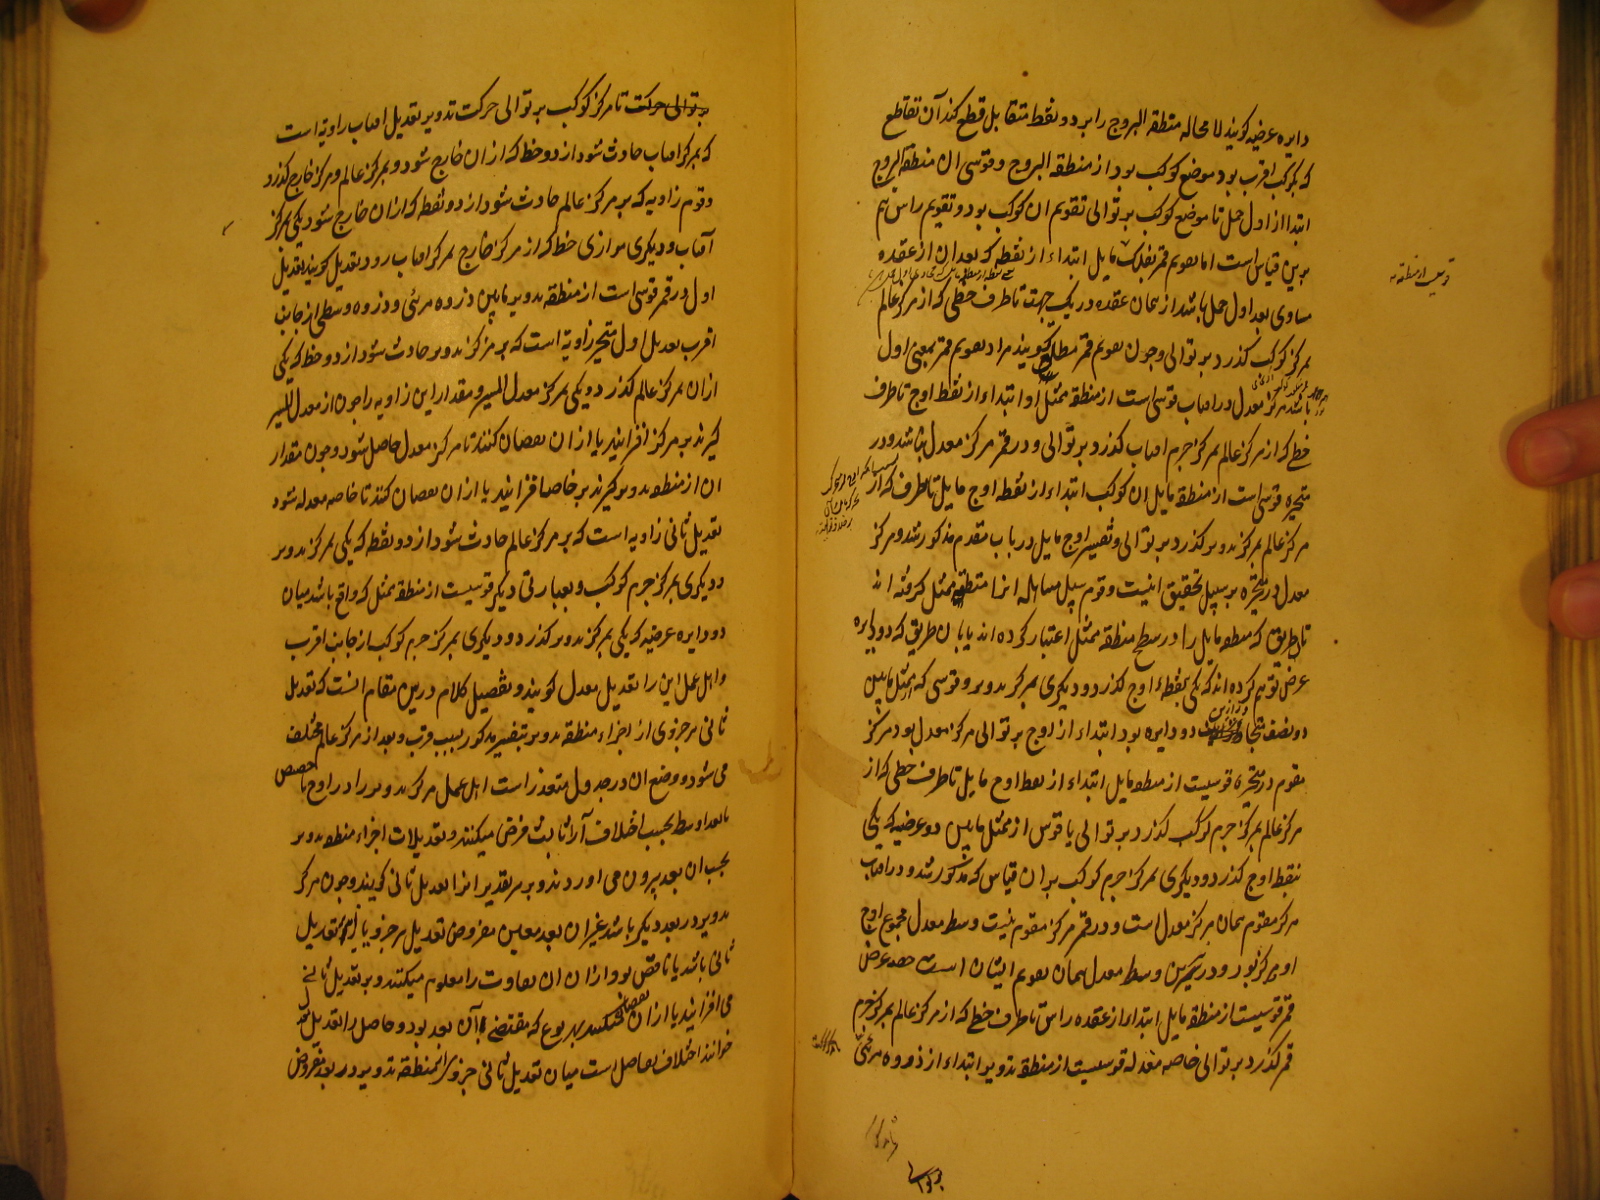 دایره عرضیه گویند لا محاله منطقه البروج را بر دو نقطه متقابل قطع کند آن تقاطع
که بکوکب اقرب بود موضع کوکب بود از منطقه البروج و قوسی از منطقه البروج
ابتدا از اول حمل تا موضع کوکب بر توالی تقویم ان کوکب بود و تقویم راس هم
برین قیاس است اما تقویم قمر بفلک مایل ابتداء از نقطه که بعد ان از عقده
مساوی بعد اول حمل باشد از همان عقده در یک جهت تا طرف خطی که از مرکز عالم
بمرکز کوکب گذرد بر توالی و چون تقویم قمر مطلق گویند مراد تقویم قمر بمعنی اول
باشد مرکز معدل در افتاب قوسی است از منطقه ممثل او ابتداء از نقطه اوج تا طرف
خطی که از مرکز عالم بمرکز جرم افتاب گذرد بر توالی و در قمر مرکز معدل نباشد و در
متحیره قوسی است از منطقه مایل ان کوکب ابتداء از نقطه اوج مایل تا طرف که از
مرکز عالم بمرکز تدویر گذرد بر توالی و تفسیر اوج مایل در باب مقدم مذکور شد و مرکز
معدل در متحیره بر سبیل تحقیق اینست و قوم بر سبیل مساهله انرا منطقه ممثل گرفته اند
تا بطریق که منطقه مایل را در سطح منطقه ممثل اعتبار کرده اند یا بان طریق که دو دایره
عرض توهم کرده اند که یکی بنقطه اوج گذرد و دیگری بمرکز تدویر و قوسی که از ممثل مابین
دو نصف دو دایره بود ابتداء از اوج بر توالی مرکز معدل بود مرکز
مقوم در متحیره قوسیست از منطقه مایل ابتداء از نقطه اوج مایل تا طرف خطی که از
مرکز عالم بمرکز جرم کوکب گذرد بر توالی یا قوس از ممثل مابین دو عرضیه که یکی
بنقطه اوج گذرد و دیگری بمرکز جرم کوکب بران قیاس که مذکور شد و در افتاب
مرکز مقوم همان مرکز معدل است و در قمر مرکز مقوم نیست وسط معدل مجموع اوج
و مرکز بود و در نیرین وسط معدل همان تقویم ایشان است حصه عرض
قمر قوسیست از منطقه مایل ابتدا از عقده راس تا طرف خطی که از مرکز عالم بمرکز جرم
قمر گذرد بر توالی خاصه معدله قوسیست از منطقه تدویر ابتداء از ذروه مرئی
بر توالی
بر توالی حرکت تا مرکز کوکب بر توالی حرکت تدویر تعدیل افتاب زاویه است
که بمرکز افتاب حادث شود از دو خط که از ان خارج شود و بمرکز عالم و مرکز خارج گذرد
و قوم زاویه که بر مرکز عالم حادث شود از دو نقطه که از ان خارج شود یکی بمرکز
آفتاب و دیگری موازی خط که از مرکز خارج بمرکز افتاب رود تعدیل گویند تعدیل
اول در قمر قوسی است از منطقه تدویر مابین ذروه مرئی و ذروه وسطی از جانب
اقرب تعدیل اول متحیره زاویه است که بر مرکز تدویر حادث شود از دو خط که یکی
از ان بمرکز عالم گذرد و یکی بمرکز معدل المسیر و مقدار این زاویه را چون از معدل المسیر
گیرند بر مرکز افزایند یا از ان نقصان کنند تا مرکز معدل حاصل شود و چون مقدار
ان از منطقه تدویر گیرند بر خاصه افزایند یا از ان نقصان کنند تا خاصه معدله شود
تعدیل ثانی زاویه است که بر مرکز عالم حادث شود از دو نقطه که یکی بمرکز تدویر
و دیگری بمرکز جرم کوکب و بعبارتی دیگر قوسیست از منطقه ممثل که واقع باشد میان
دو دایره عرضیه که یکی بمرکز تدویر گذرد و دیگری بمرکز جرم کوکب از جانب اقرب
و اهل عمل این را تعدیل معدل گویند و تفصیل کلام درین مقام انست که تعدیل
ثانی هر جزوی از اجزاء منطقه تدویر بتفسیر مذکور بسبب قرب و بعد از مرکز عالم مختلف
می شود و وضع ان در جدول متعذر است اهل عمل مرکز تدویر را در اوج یا حضیض
یا بعد اوسط بحسب اختلاف آرا ثابت فرض میکنند و تعدیلات اجزاء منطقه تدویر
بحسب ان بعد بیرون می اورد و بر تقدیر انرا تعدیل ثانی گویند و چون مرکز
تدویر در بعد دیگر باشد غیر ان بعد معین مفروض تعدیل هر جزو یا زاید بر تعدیل
ثانی باشد یا ناقص بود از ان ان تفاوت را معلوم میکنند و بر تعدیل ثانی
می افزایند یا از ان نقصان میکنند بهر نوع که مقتضی آن بعد بود و حاصل را تعدیل معدل
خوانند اختلاف تفاضل است میان تعدیل ثانی جزوی از منطقه تدویر در بعد مفروض